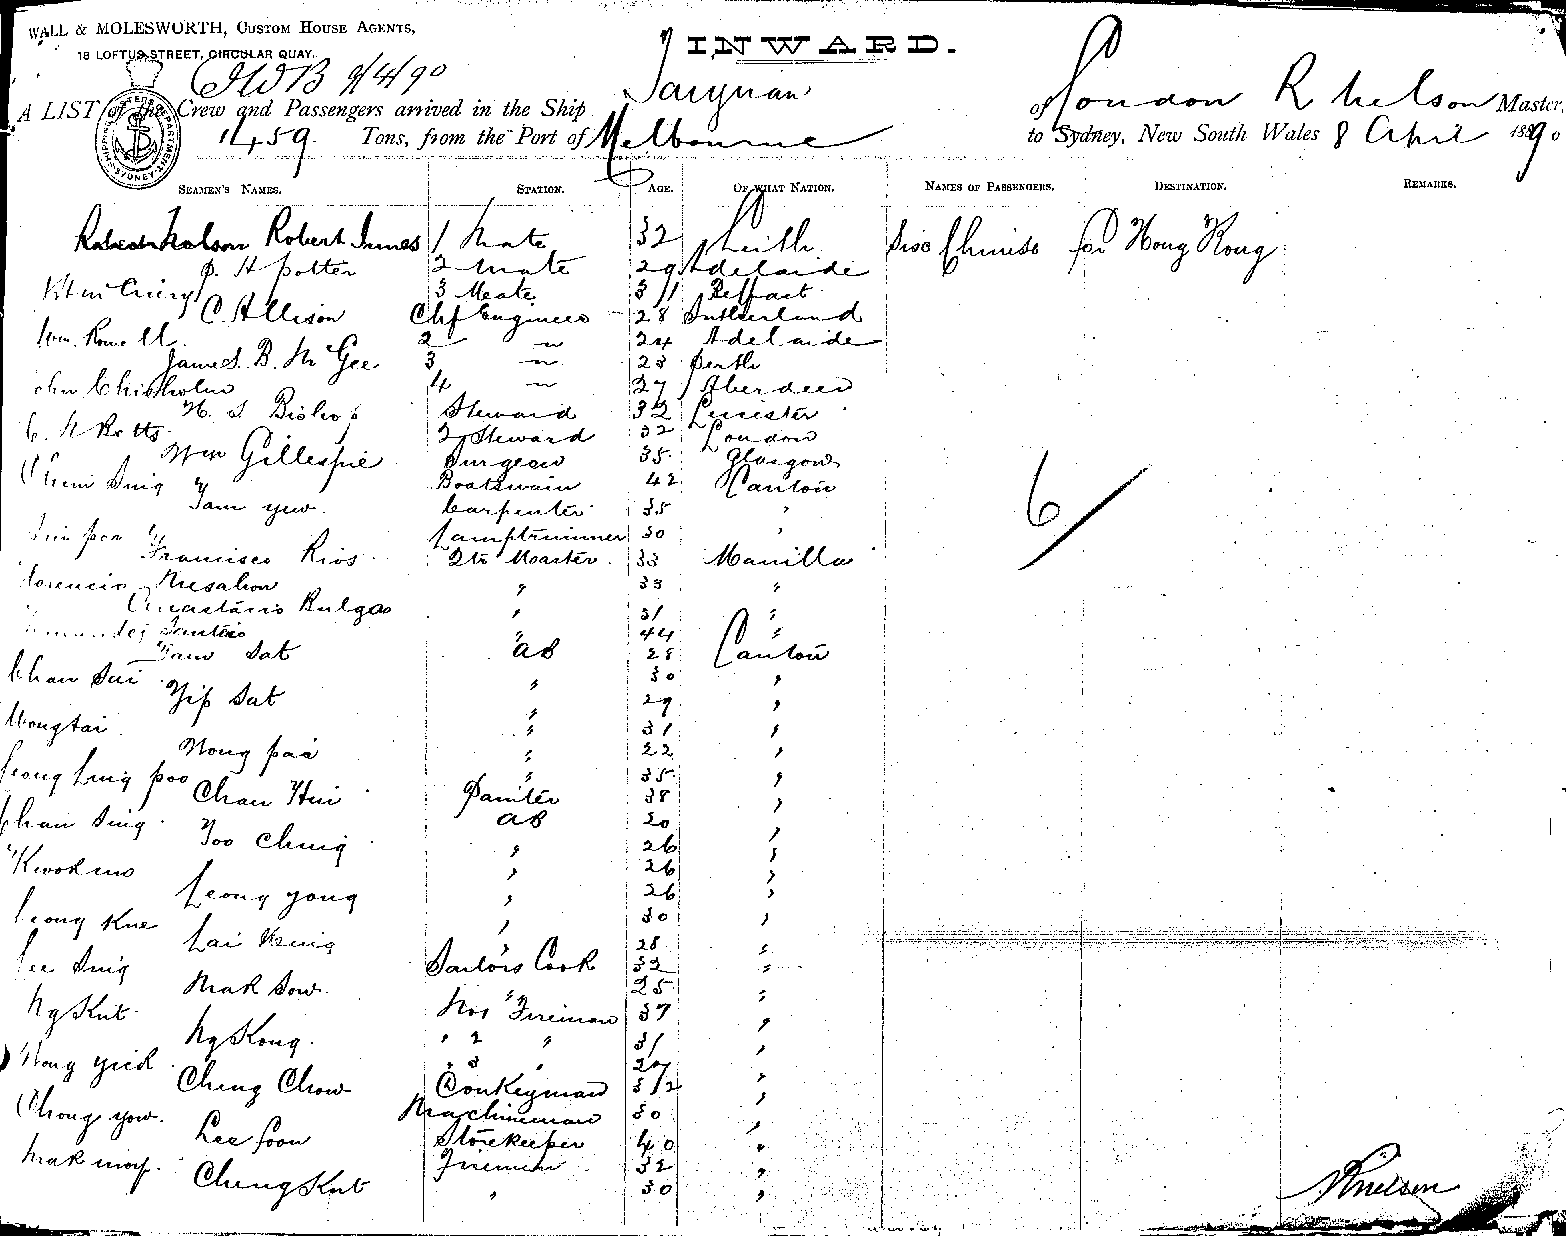 WALL & MOLESWORTH, CUSTOM HOUSE AGENTS,
18 LOFTUS STREET, CIRCULAR QUAY.
INWARD.
9/4/90
A LIST of the Crew and Passengers arrived in the Ship of London R Nelson Master,
1459 Tons, from the Port of Melbourne to Sydney, New South Wales 8 April 1890
SEAMEN'S NAMES. STATION. AGE. OF WHAT NATION. NAMES OF PASSENGERS. DESTINATION. REMARKS.
Robert Innes 1 Mate 32 Leith Six Chinese for Hong Kong
P. H Potter 2 Mate 29 Adelaide
3 Mate 31 Belfast
C. Allison Chf Engineer 28 Sutherland
Wm. Rowell 2 " 24 Adelaide
James. B. McGee 3 " 23 Perth
Chisholm 4 " 27 Aberdeen
H. S Bishop Steward 32 Leicester
C. H Betts 2 Steward 32 London
Wm Gillespie Surgeon 35 Glasgow
Sing Boatswain 42 Canton
Tam yew Carpenter 35 "
poa Lamptrimmer 30 "
Francisco Rios Qtr Master 33 Manilla
" 33 "
" 31 "
" 44 "
Tam Sat AB 28 Canton
Chan Sui " 30 "
Yip Sat " 29 "
Wong tai " 31 "
Wong paa " 22 "
Leong Ling poo " 35 "
Chan Hui Painter 38 "
Chan Sing AB 20 "
Yoo Ching " 26 "
" 26 "
Leong yong " 26 "
Leong Kue " 30 "
Lai " 28 "
Lee Sing Sailors Cook 32 "
Mak Sow " 25 "
Ng Kut No 1 Fireman 37 "
Ng Kong. " 2 " 31 "
Wong yick " 3 " 27 "
Ching Chow Donkeyman 32 "
Chong yow. Machineman 30 "
Lee foon Storekeeper 40 "
Mak Firemen 32 "
Ching Kut " 30 "
6/
R Nelson